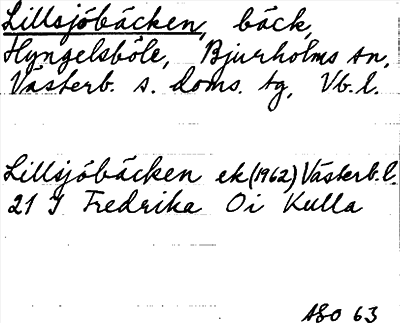 Lillsjöbäcken, bäck,
Hyngelsböle, Bjurholms sn,
Västerb. s. doms. tg, Vb. l.
Lillsjöbäcken ek (1962) Västerb. l.
21 I Fredrika Oi Kulla
ASO 63